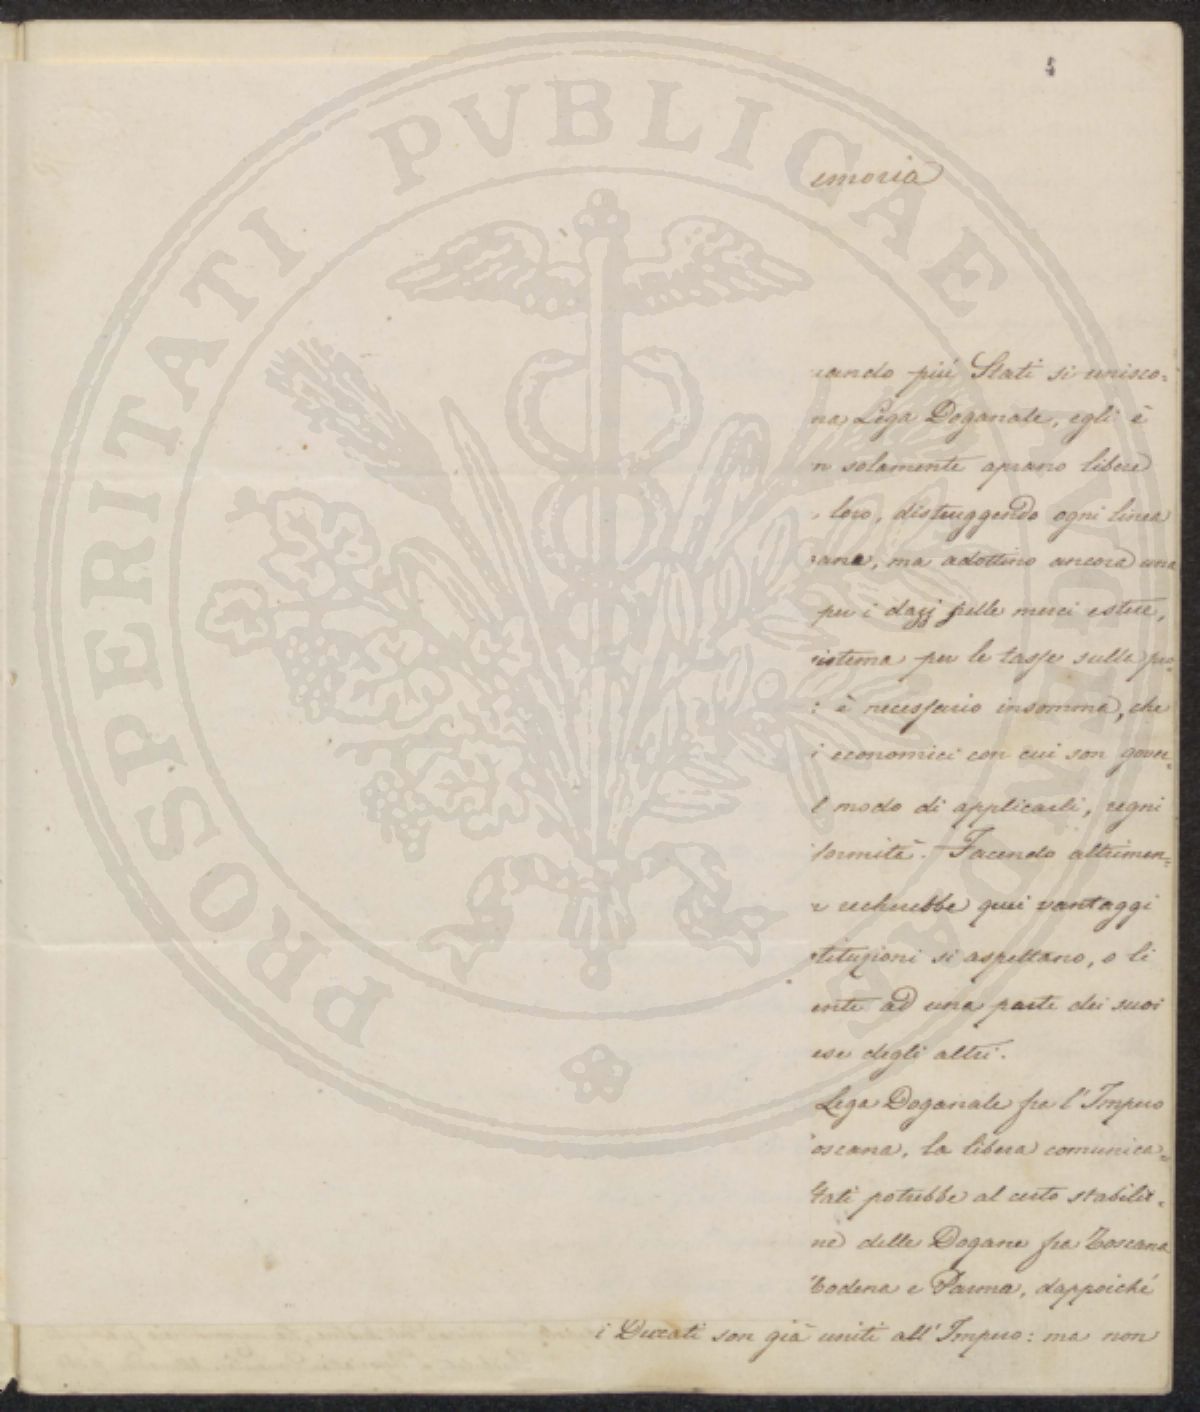 PROSPERITATI PVBLICAE AVGENDAE
emoria
uando piú Stati si unisco=
na Lega Doganale, egli è
n solamente aprano libere
loro, distruggendo ogni linea
gana, ma adottino ancora una
per i dazj sulle merci estere,
sistema per le tasse sulle pro=
: è necessario insomma, che
i economici con cui son gover=
l modo di applicarli, regni
formità. Facendo altrimen=
n recherebbe quei vantaggi
stituzioni si aspettano, o li
ente ad una parte dei suoi
ese degli altri.
Lega Doganale fra l'Impero
oscana, la libera comunica=
Stati potrebbe al certo stabilir=
ne delle Dogane fra Toscana
Modena e Parma, dappoiché
i Ducati son già uniti all'Impero: ma non